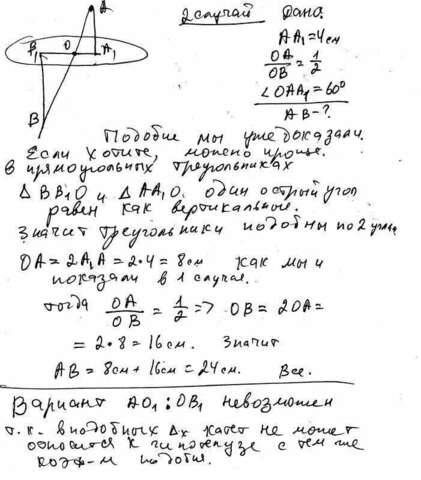 A
2 случай Дано:
AA₁ = 4 см
OA/OB = 1/2
∠OAA₁ = 60°
AB - ?
B₁ O A₁
B
Подобие мы уже доказали.
Если хотите, можно проще.
В прямоугольных треугольниках
△ BB₁O и △ AA₁O один острый угол
равен как вертикальные.
Значит треугольники подобны по 2 углам
OA = 2A₁A = 2·4 = 8 см как мы и
показали в 1 случае.
тогда OA/OB = 1/2 => OB = 2OA =
= 2·8 = 16 см. Значит
AB = 8 см + 16 см = 24 см. Все.
Вариант AO₁ : OB₁ невозможен
т.к. в подобных △х катет не может
относится к гипотенузе с тем же
коэф-м подобия.